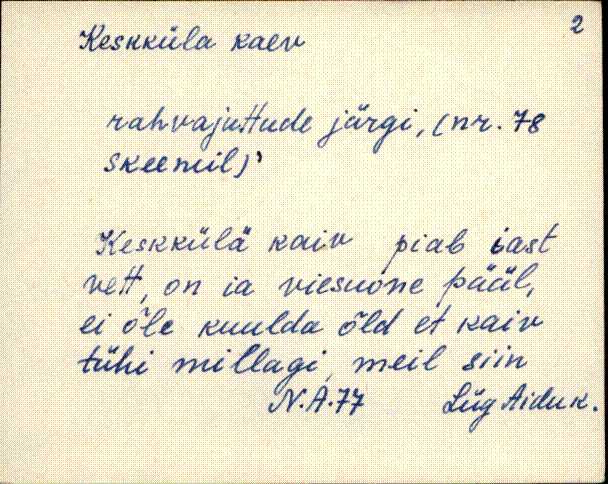 2
Keskküla kaev
rahvajuttude järgi, (nr. 78
skeemil)'
Keskkülä kaiv piab iast
vett, on ia viesuone pääl,
ei õle kuulda õld et kaiv
tühi millagi, meil siin
N.A.77 Lüg Aidu k.